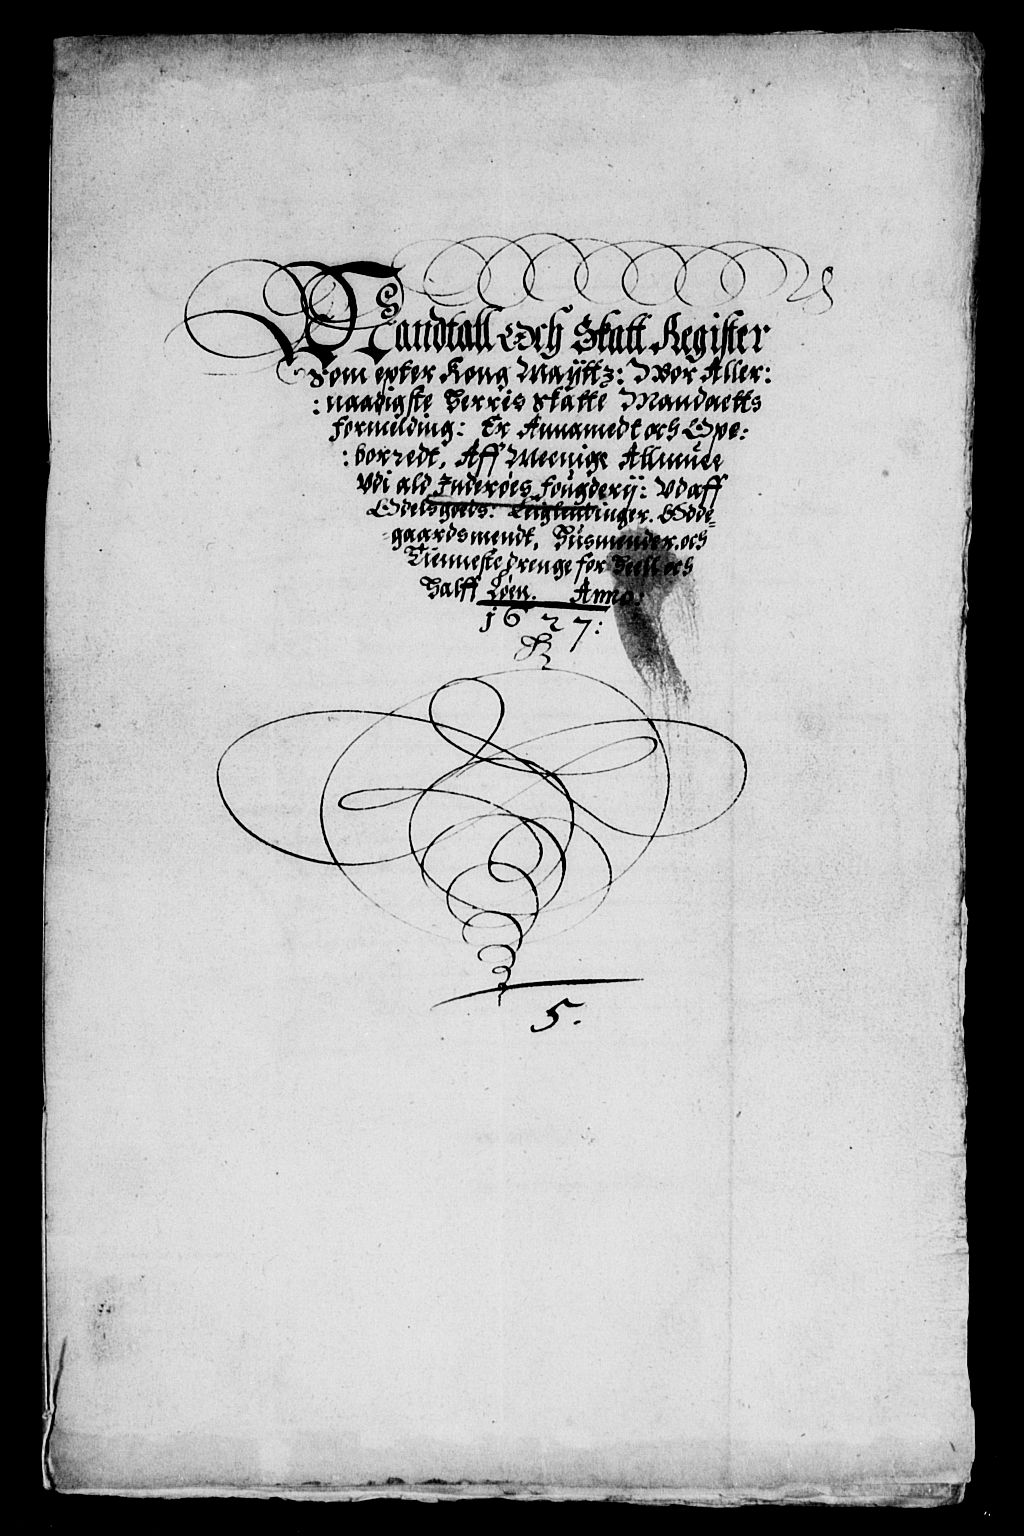 Mandtall Och Skatt Register
Som epter Kong Mayttz: Wor Aller:
:naadigste Herris Skatte Mandaetts
formelding: Er Annamedt och Ope:
:borredt, Aff Meenige Allmuee
Udi ald Inderøes Fougderij: Udaff
Odelsgods: Leiglendinger. Ødde-
-gaardsmendt, Husmender och
Tienneste drenge for Heell och
Halff Løen. Anno:
1627:
5.